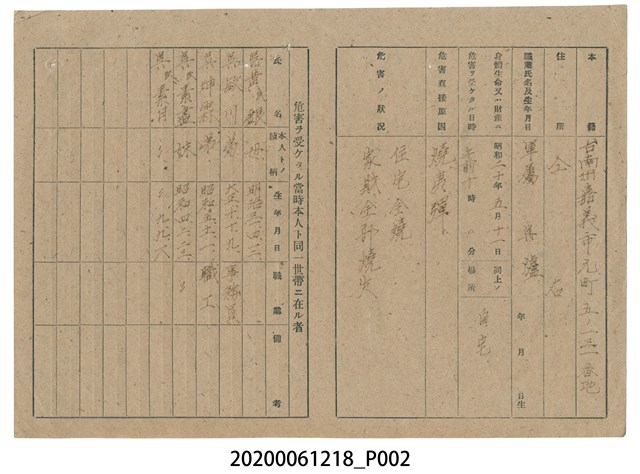 本籍 台南州嘉義市元町五ノ一三一番地
住所 仝 右
職業氏名及生年月日 軍属 呉 年 月 日生
身體生命又ハ財產ニ危害ヲ受ケタル日時 昭和二十年五月十一日 午前十時 分 同上ノ場所 自宅
危害直接原因 燒夷彈
危害ノ狀況 住宅全燒
家財全部燒失
危害ヲ受ケタル當時本人ト同一世帶ニ在ル者
氏名 本人トノ續柄 生年月日 職業 備考
呉黃 銀 母 明治三
呉 川 弟 大正 軍務員
呉 弟 昭和五 職工
呉 素 妹 昭和四
呉 素月 〃 〃 九、九、六
20200061218_P002